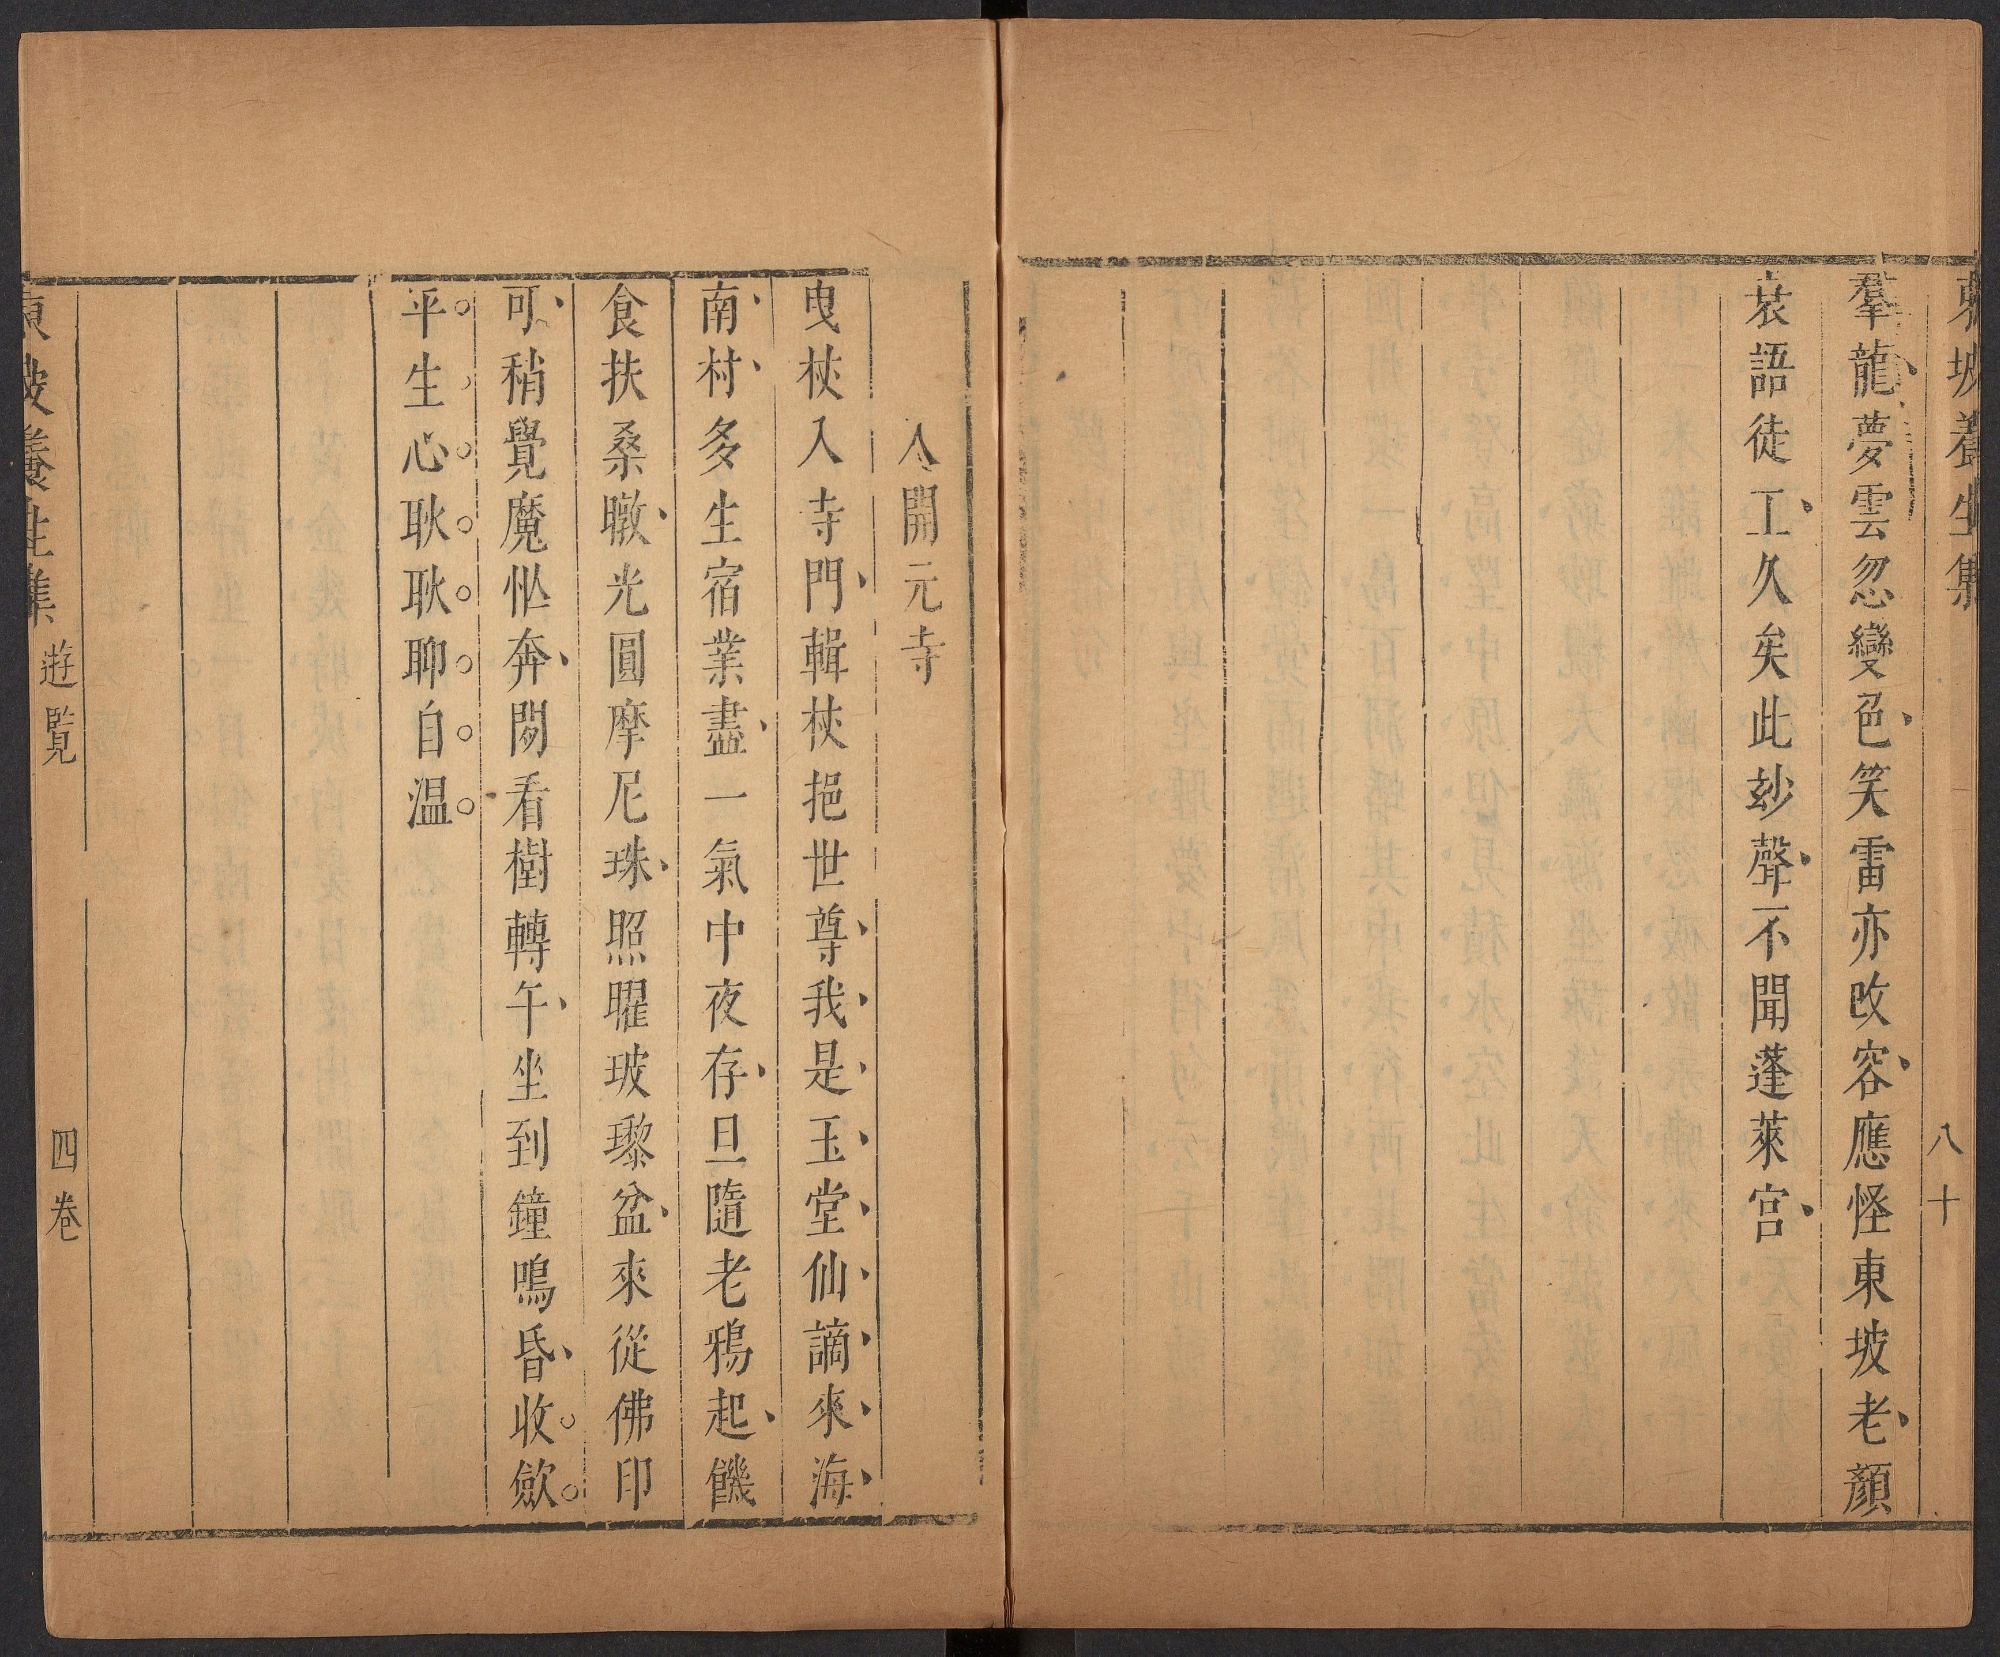 東坡養生集
八十
羣龍夢雲忽變色笑雷亦改容應怪東坡老顏
衰語徒工久矣此妙聲不聞蓬萊宮
入開元寺
曳杖入寺門輯杖挹世尊我是玉堂仙謫來海
南村多生宿業盡一氣中夜存旦隨老鴉起饑
食扶桑暾光圓摩尼珠照曜玻瓈盆來從佛印
可稍覺魔忙奔閒看樹轉午坐到鐘鳴昏收歛
平生心耿耿聊自温
東坡養生集
遊覽
四卷